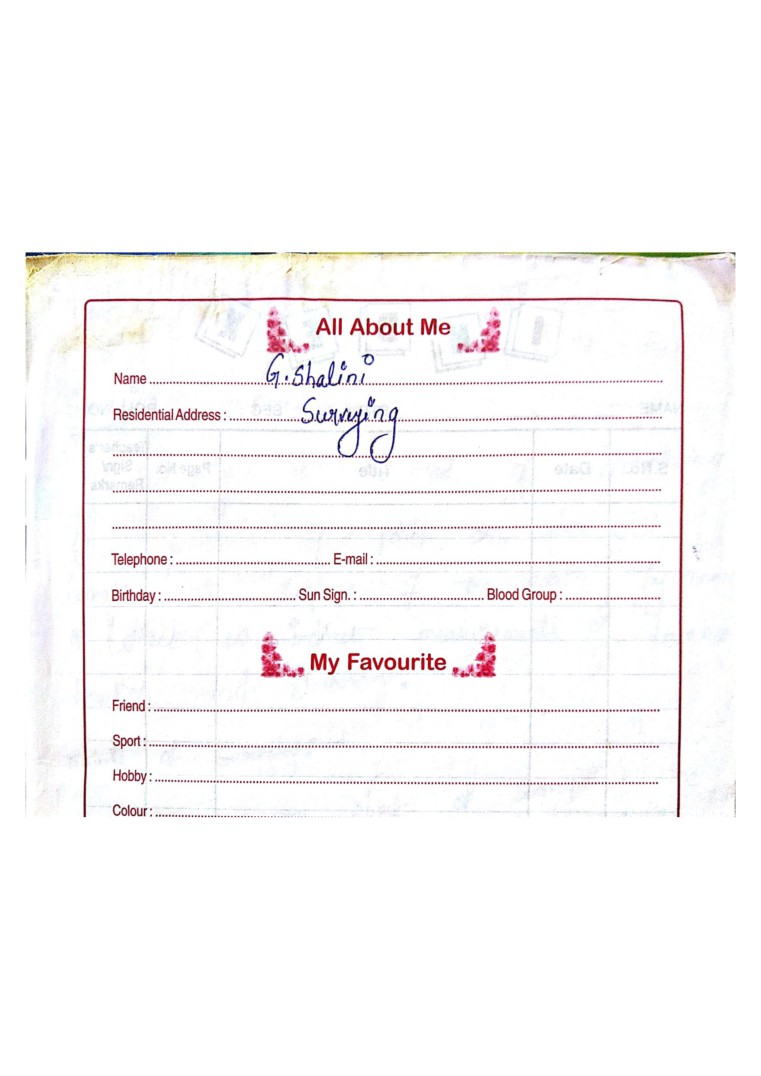 All About Me
Name ........ G. Shalini
Residential Address : ........ Surveying
Telephone : ........ E-mail : ........
Birthday : ........ Sun Sign. : ........ Blood Group : ........
My Favourite
Friend : ........
Sport : ........
Hobby : ........
Colour : ........